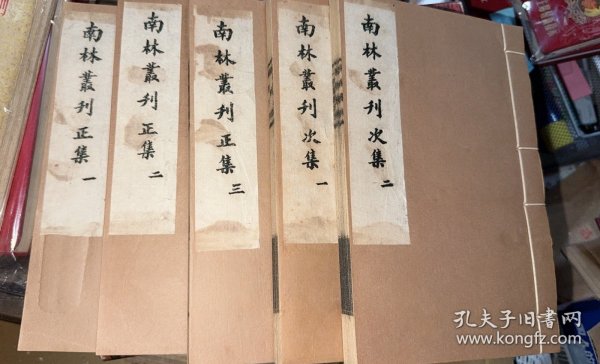 南林叢刊正集 一
南林叢刊正集 二
南林叢刊正集 三
南林叢刊次集 一
南林叢刊次集 二
孔夫子旧书网